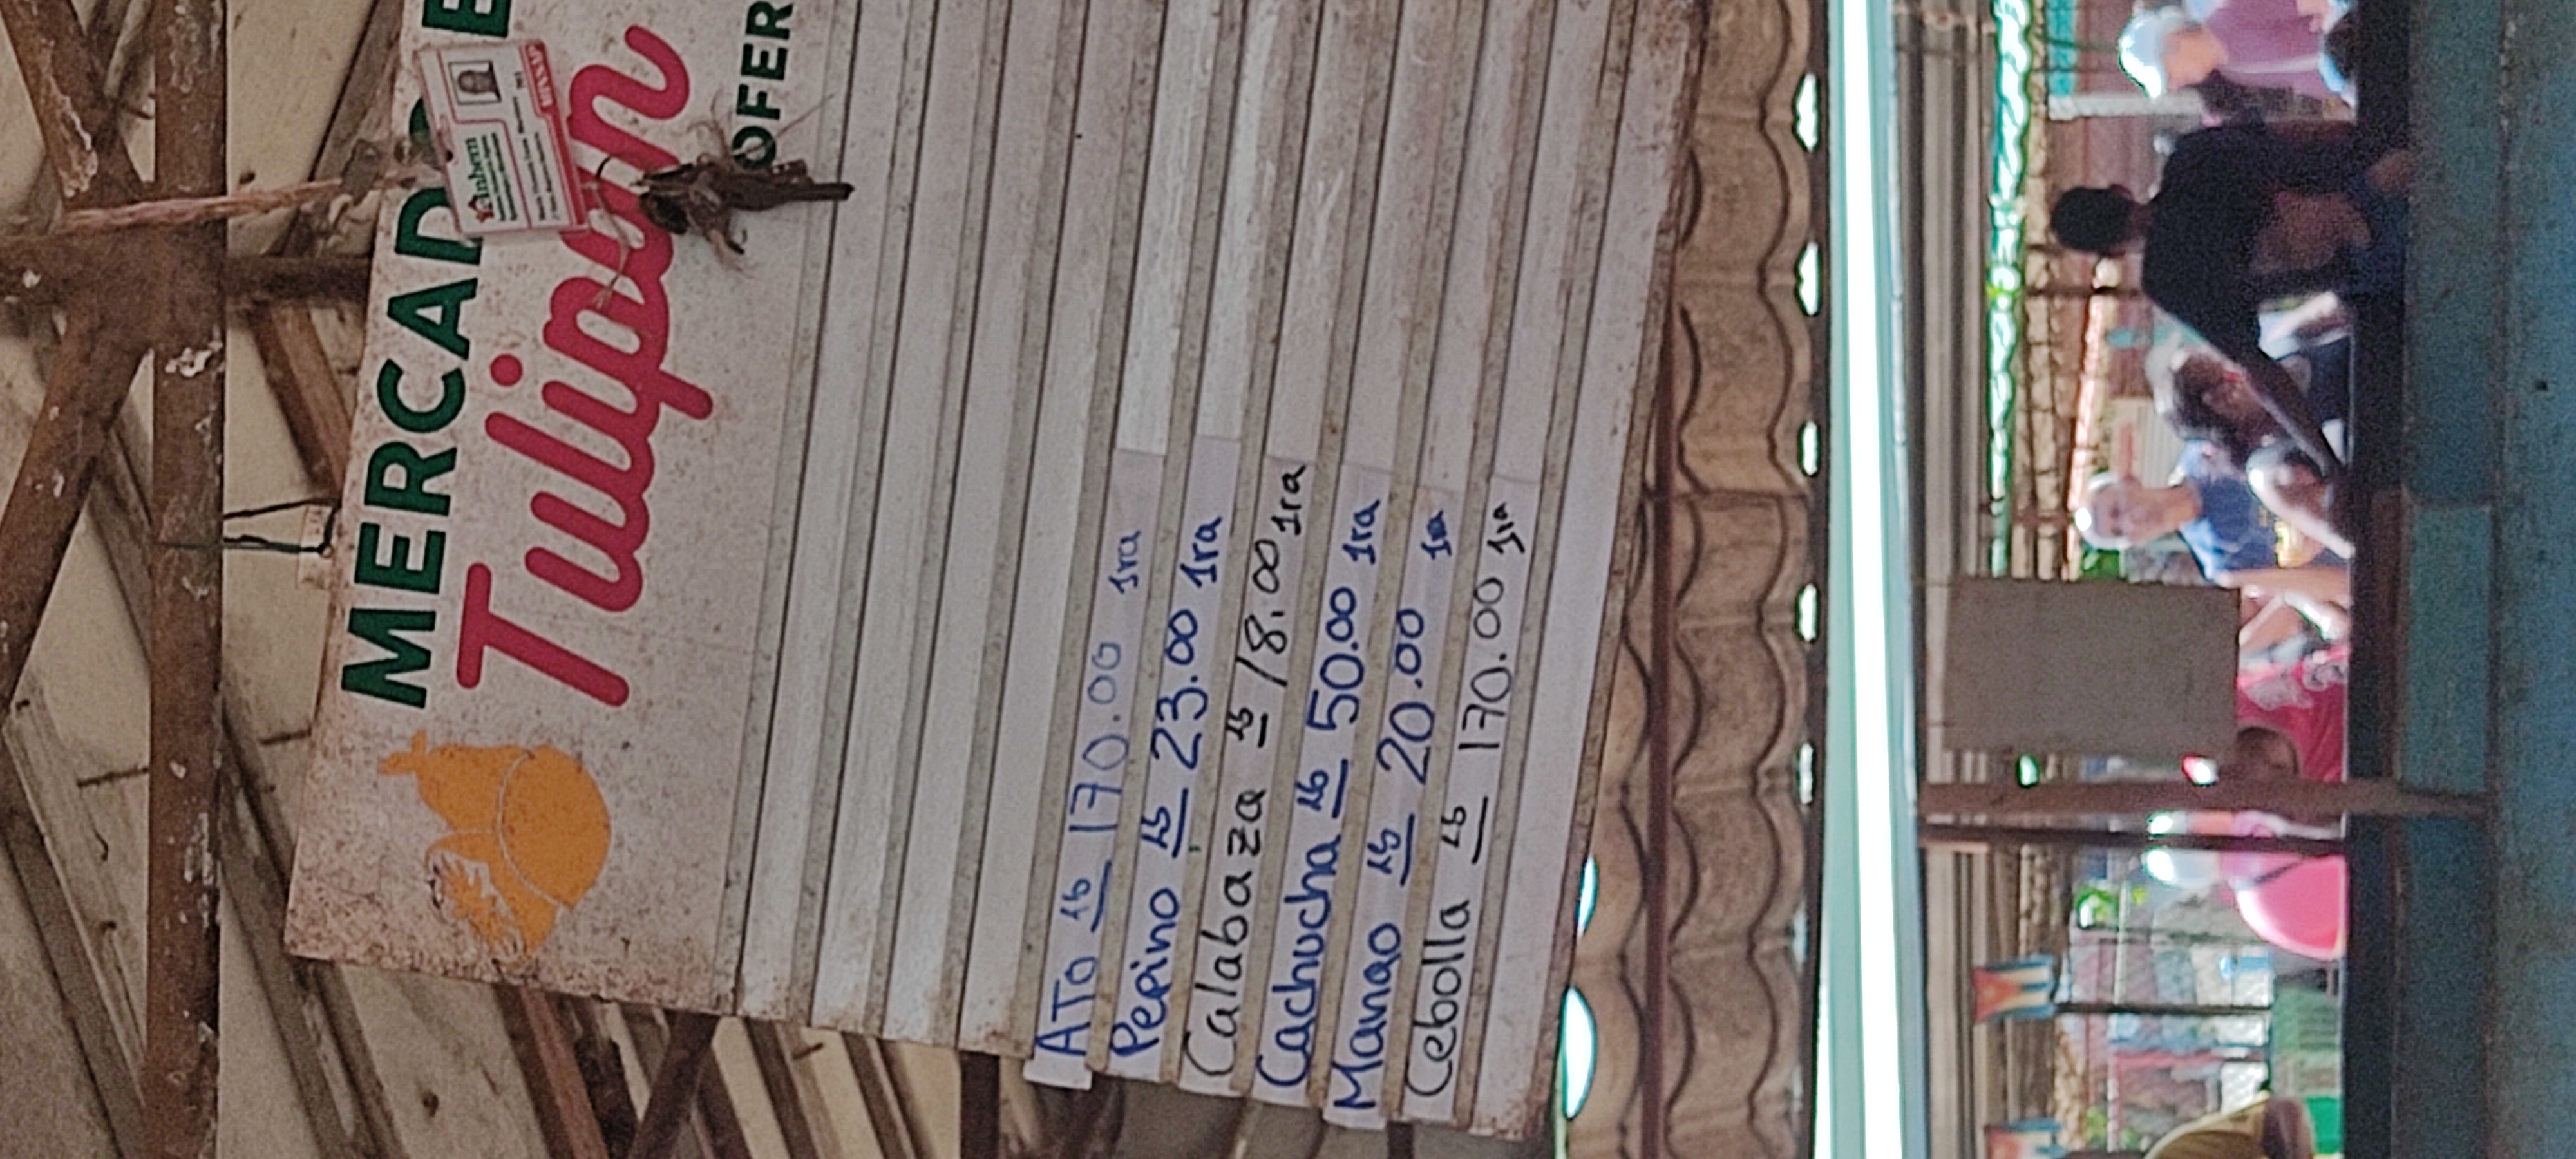 MERCADO
Tulipan
Inhem
MINSAP
OFER
ATo Lb 170.00 1ra
Pepino Lb 23.00 1ra
Calabaza Lb 18.00 1ra
Cachucha Lb 50.00 1ra
Mango Lb 20.00 1ra
Cebolla Lb 170.00 1ra